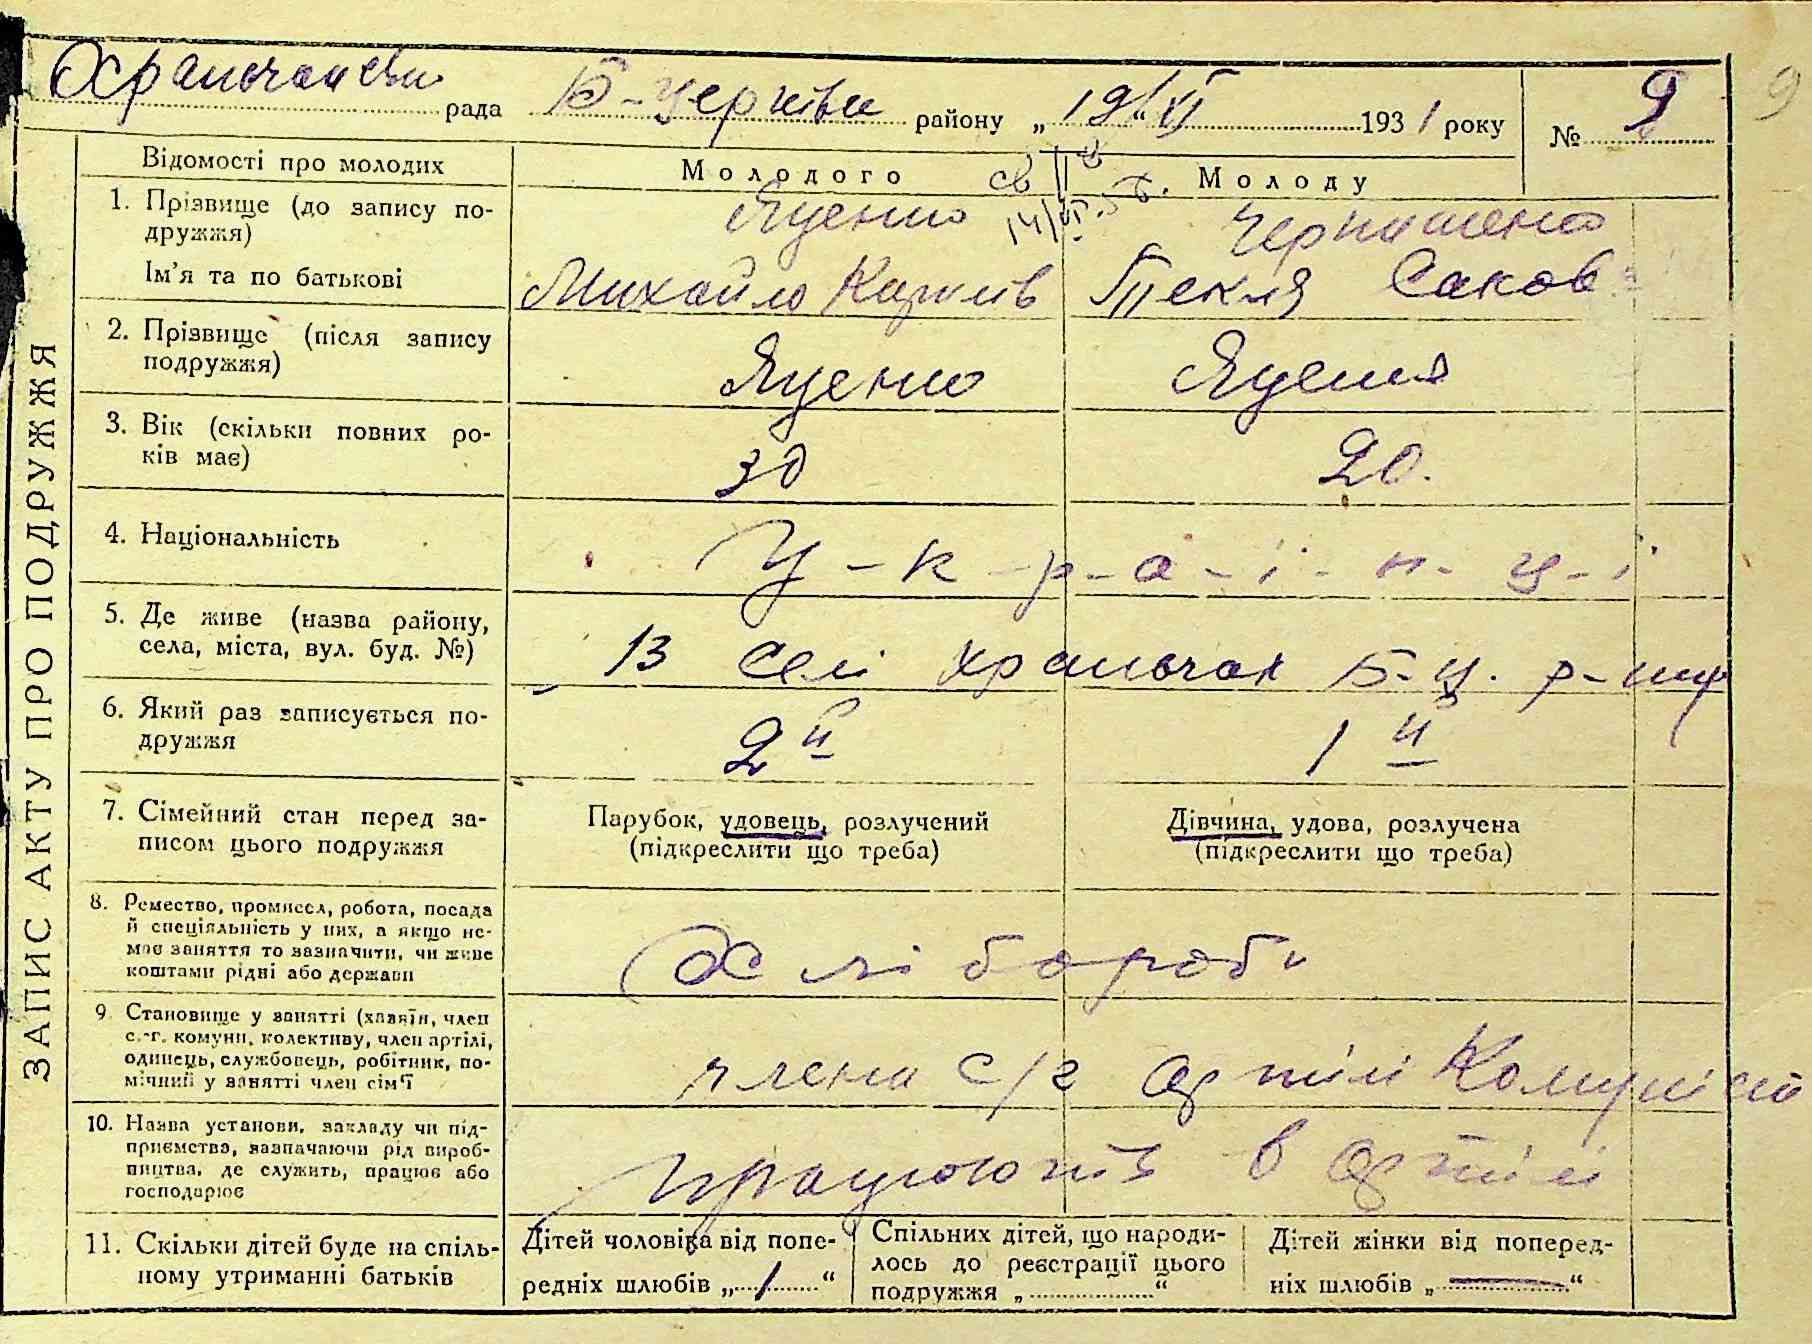 Храпчанськ рада Б-Церківськ району „19“ VI 1931 року № 9
9
ЗАПИС АКТУ ПРО ПОДРУЖЖЯ
Відомості про молодих
Молодого
Молоду
св 14/VI-5
1. Прізвище (до запису по-
дружжя)
Яценко
Чернишенко
Ім'я та по батькові
Михайло Карпів
Текля Саков
2. Прізвище (після запису
подружжя)
Яценко
Яценко
3. Вік (скільки повних ро-
ків має)
30
20.
4. Національність
У-к-р-а-ї-н-ц-і
5. Де живе (назва району,
села, міста, вул. буд. №)
В селі Храпачах Б-Ц. р-ну
6. Який раз записується по-
дружжя
2й
1й
7. Сімейний стан перед за-
писом цього подружжя
Парубок, удовець, розлучений
(підкреслити що треба)
Дівчина, удова, розлучена
(підкреслити що треба)
8. Ремество, промисел, робота, посада
й спеціяльність у них, а якщо не-
має заняття то зазначити, чи живе
коштами рідні або держави
Хлібороби
9. Становище у занятті (хазяїн, член
с.-г. комуни, колективу, член артілі,
одинець, службовець, робітник, по-
мічний у занятті член сім'ї
члени с/г артілі Комуніст
10. Назва установи, закладу чи під-
приємства, зазначаючи рід вироб-
ництва, де служить, працює або
господарює
працюють в артілі
11. Скільки дітей буде на спіль-
ному утриманні батьків
Дітей чоловіка від попе-
редніх шлюбів „1“
Спільних дітей, що народи-
лось до реєстрації цього
подружжя „ “
Дітей жінки від поперед-
ніх шлюбів „—“